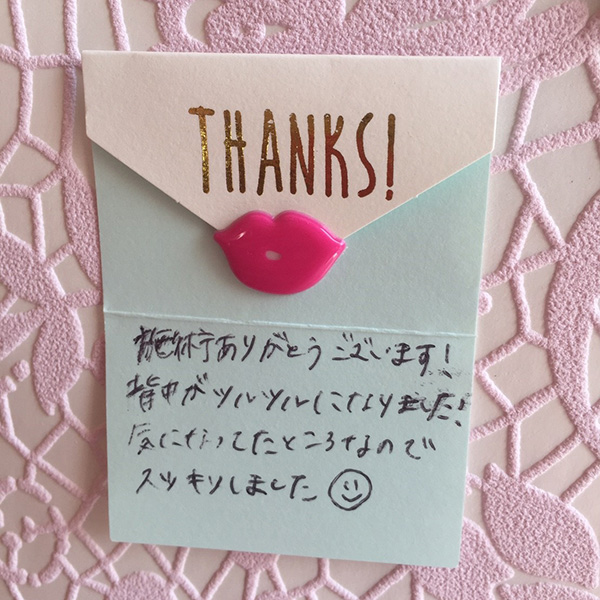 THANKS!
施術ありがとうございます!
背中がツルツルになりました!
気になってたところなので
スッキリしました